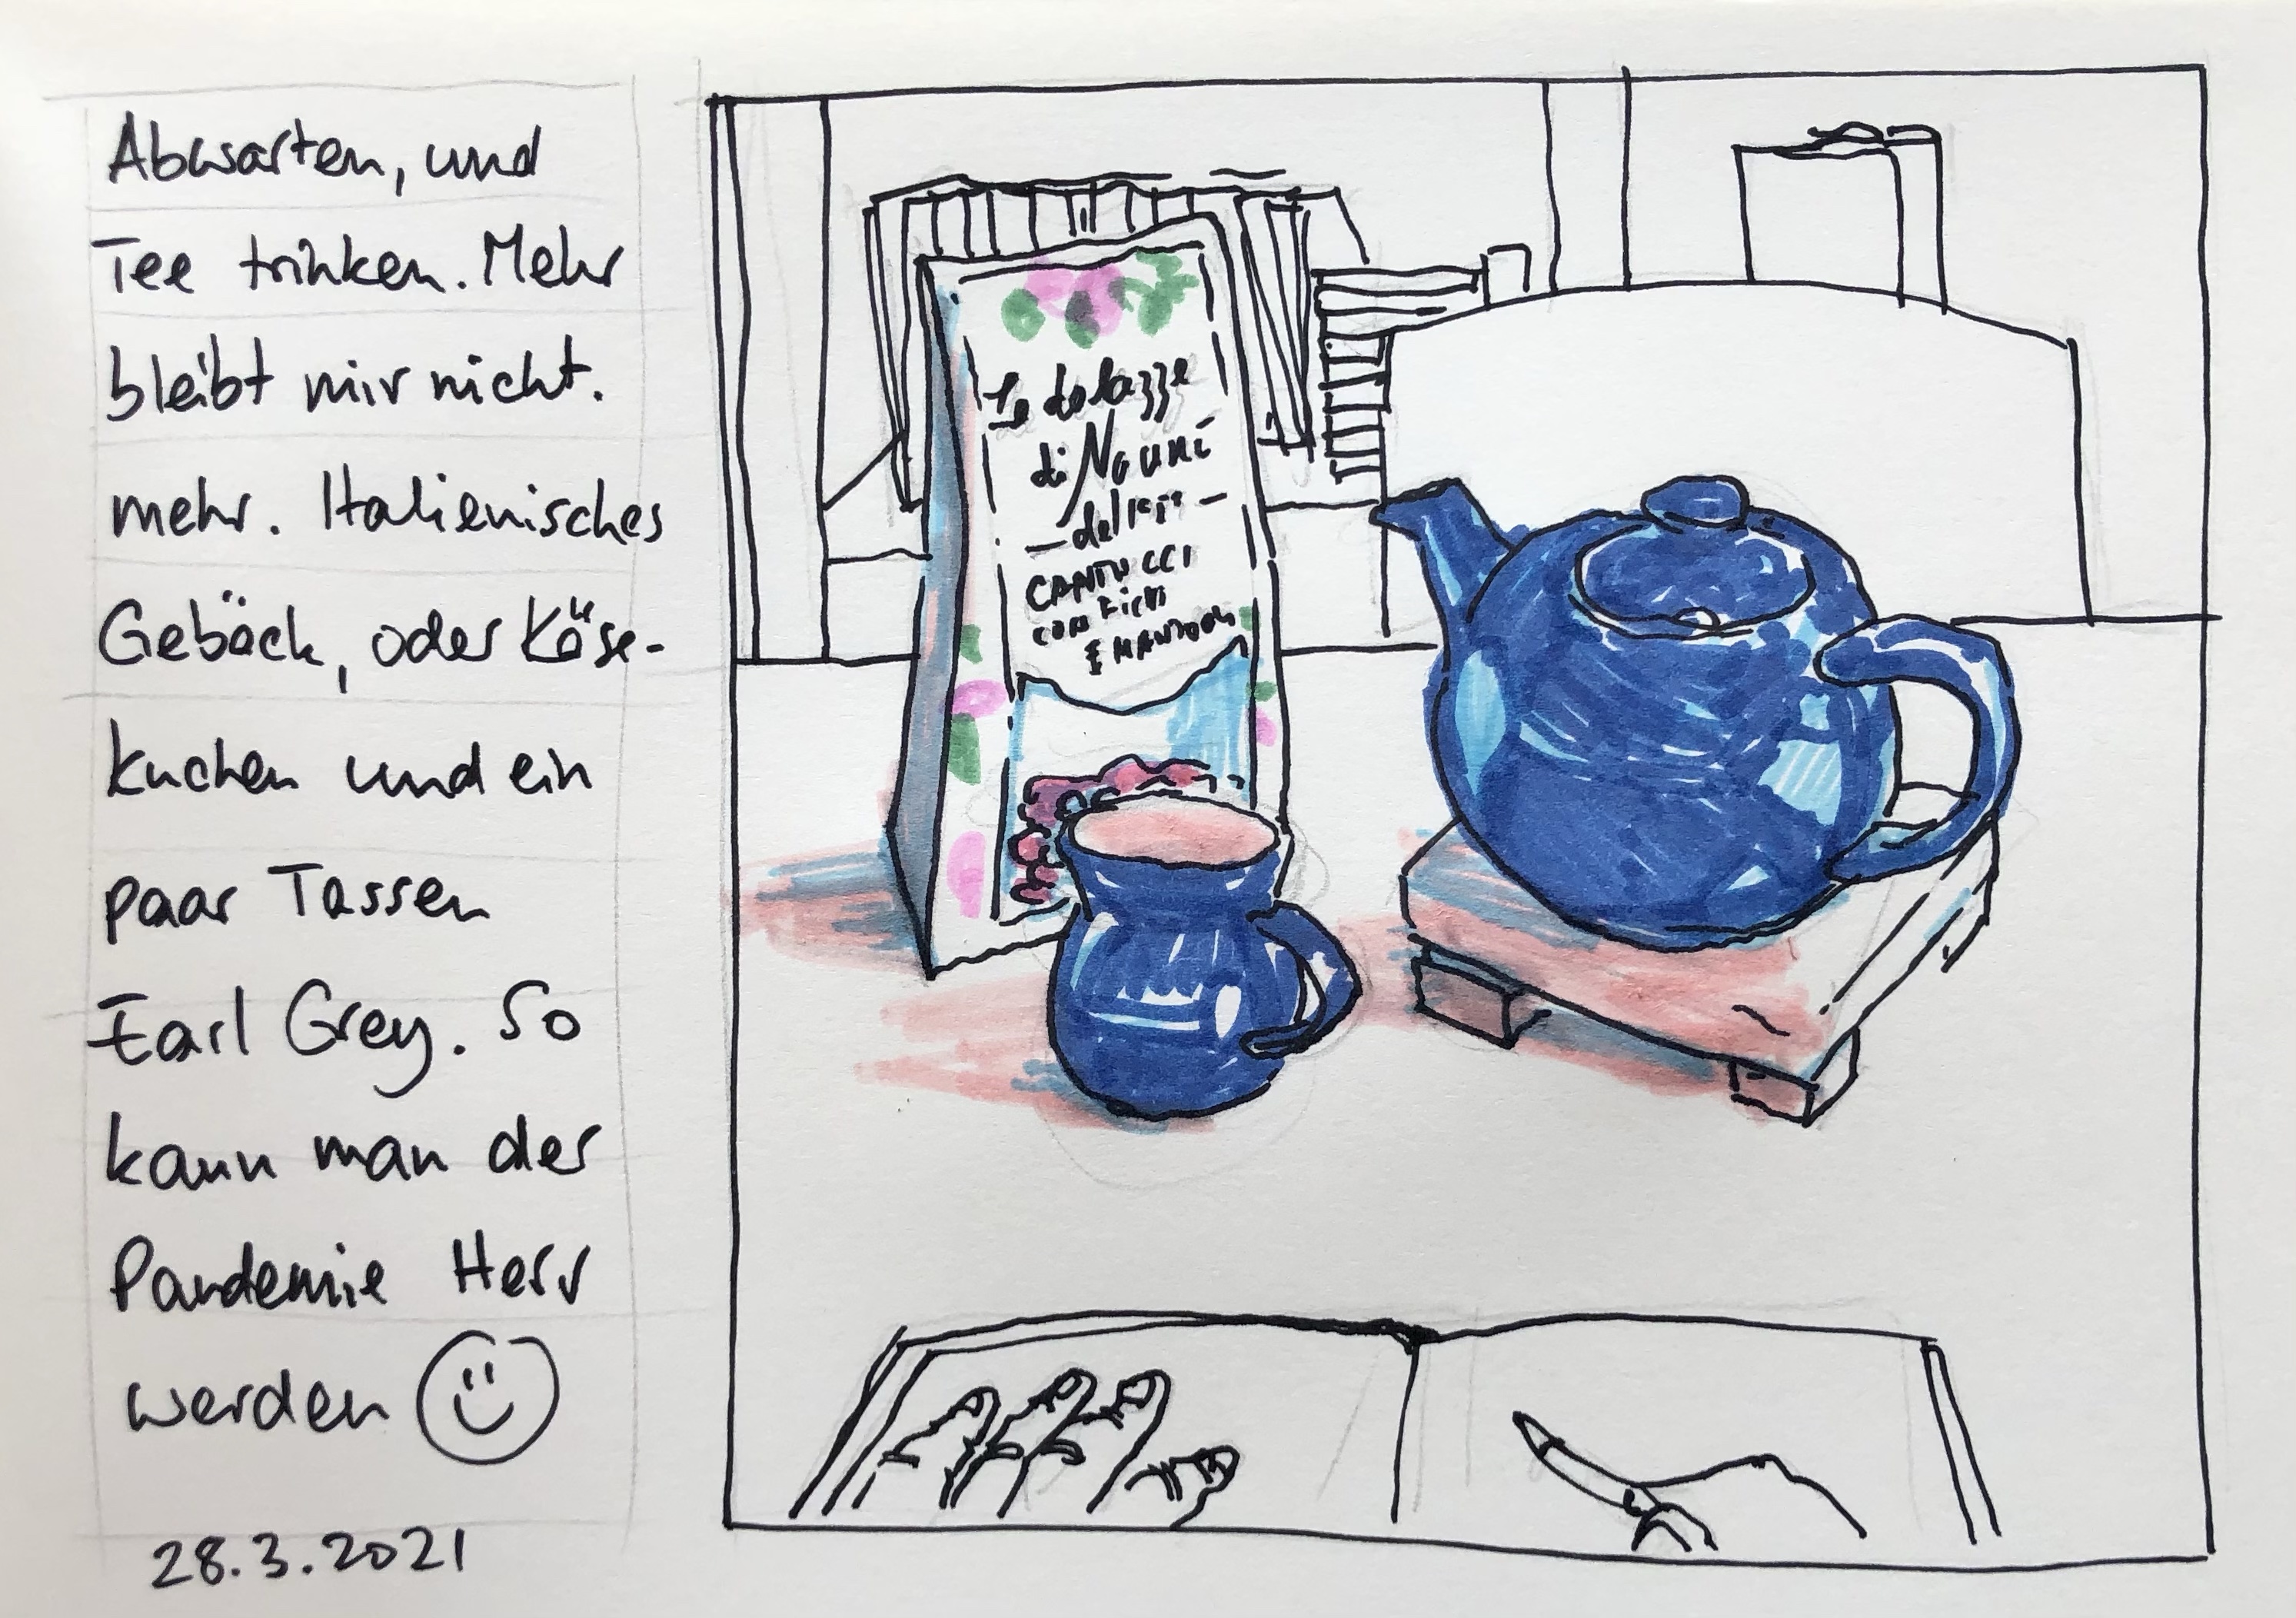 Abwarten, und
Tee trinken. Mehr
bleibt mir nicht.
mehr. Italienisches
Gebäck, oder Käse-
kuchen und ein
paar Tassen
Earl Grey. So
kann man der
Pandemie Herr
werden
28.3.2021
di
CANTUCCI
CON FICHI
E